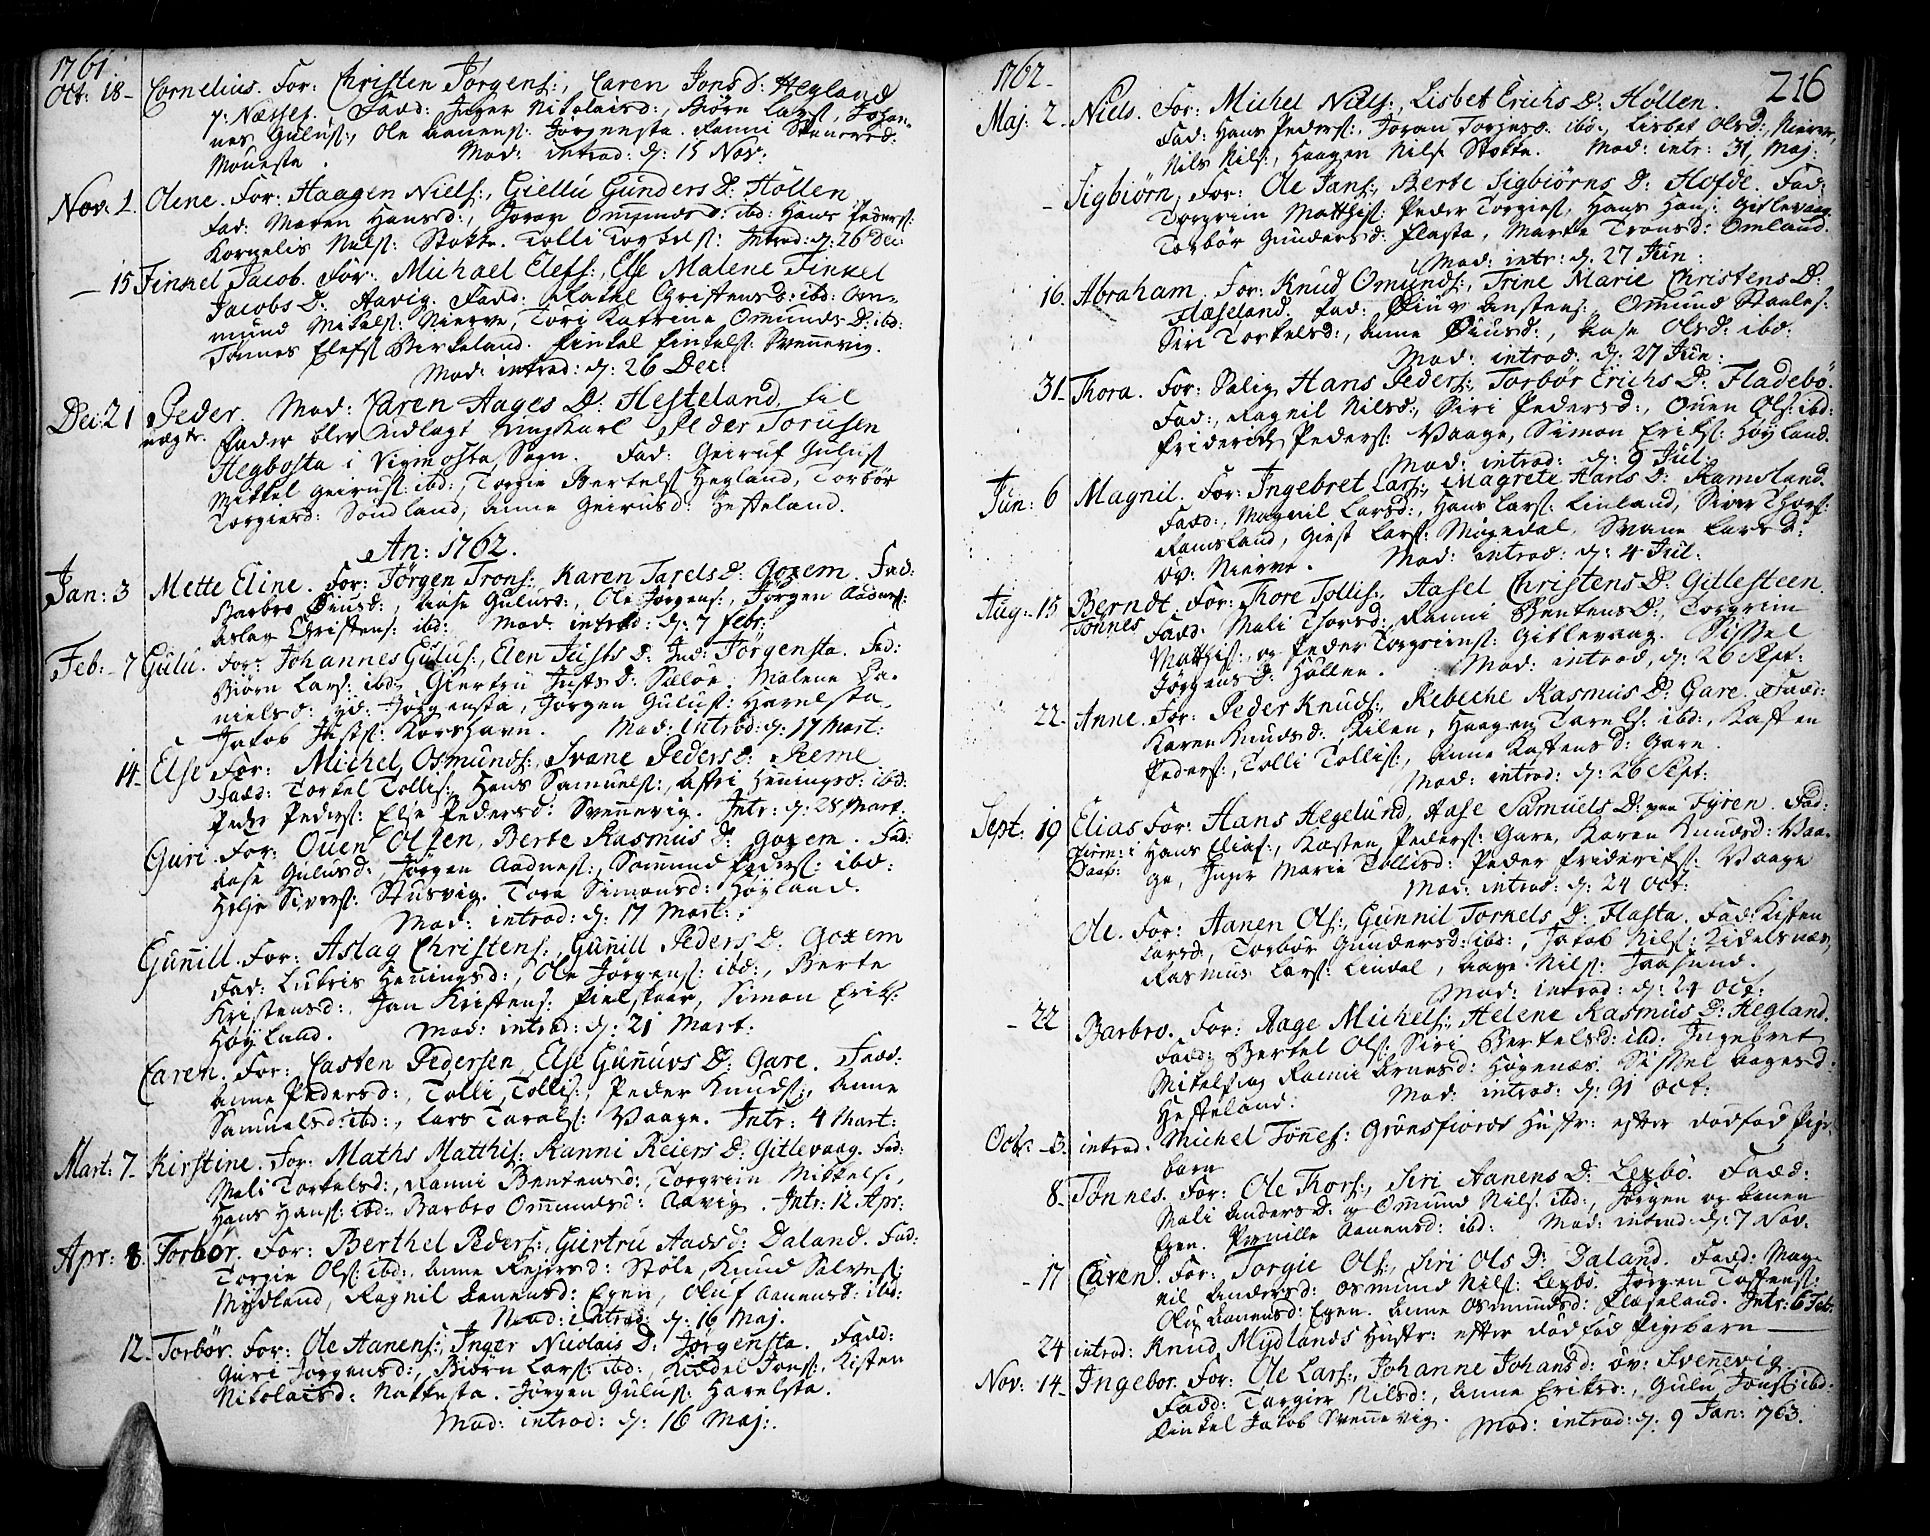 1761
Oct: 18 - Cornelius. For: Christen Jørgens:, Caren Jonsd: Hegland
7: Næsset. Fadd: Inger Nikolaisd:, Biørn Lars:, Johan-
nes Gulus:, Ole Aanens: Jørgensta. Ranni
Mouesta. Mod: introd: d: 15 Nov:
Nov: 1. Olene. For: Haagen Niels:, Giellu Gunders D: Høllen
Fad: Maren Hansd:, Joran Omundsd: ibd: Hans Peders:
Kornelis Nils: Stokke. Tolli Torkels: Introd: d: 26 Dec:
- 15 Finkel Jacob. For: Michael Elefs:, Else Malene Finkel
Jacobs D: Aavig. Fadd: Rakel Christensd: ibd: Om-
mund Mikels: Nierve, Tori Katrine Omunds D: ibd:
Tønnes Elefs: Birkeland. Finkel Finkels: Svennevig.
Mod: introd: d: 26 Dec:
Dec: 21 Peder. Mod: Caren Aages D: Hesteland. til
uægte. Fader blev udlagt ungkarl Peder Torusen
Hegbosta i Vigmosta Sogn. Fad: Geiruf Gulus:
Mikkel Geirus: ibd:, Torgie Bertels: Hegland, Torbør
Torgiesd: Søndland, Anne Geirusd: Hesteland.
An: 1762.
Jan: 3 Mette Eline. For: Jørgen Trons:, Karen Tarels D: Goxem. Fad:
Barbro Øiusd:, Aase Gulusd:, Ole Jørgens:, Jørgen Aadnes:
Aslag Christens: ibd: Mod: introd: d: 7 Febr:
Feb: - 7 Gulu. For: Johannes Gulus:, Elen Justs D: Ind: Jørgensta. Fad:
Biørn Lars: ibd: Giertru Justs D: Sæløe, Malene Da-
nielsd: Jørgensta, Jørgen Gulus: Harelsta,
Jakob Justs: Korshavn. Mod: introd: d: 17 Mart:
14. Else For: Michel Osmunds:, Svane Peders D: Reme
Fadd: Torkel Tollis:, Hans Samuels:, Astri Henningsd: ibd:
Peder Peders: Else Pedersd: Svennevig. Intr: d: 28 Mart:
Guri. For: Ouen Olsen, Berte Rasmus D: Goxem. Fad:
Aase Gulusd:, Jørgen Aadnes:, Sommund Peders: ibd:
Helje Sivers: Stusvig. Tore Simonsd: Høyland.
Mod: introd: d: 17 Mart:
Gunnill. For: Aslag Christens:, Gunnill Peders D: Goxem
Fad: Lukris Henningsd:, Ole Jørgens: ibd:, Berte
Kristensd: Jan Kristens: Fielskaar, Simon Eriks:
Høyland. Mod: introd: d: 21 Mart:
Caren. For: Casten Pedersen, Else Gunuvs D: Gare. Fadd:
Anne Pedersd:, Tolli Tollis:, Peder Knuds:, Anne
Samuelsd: ibd:, Lars Tarals: Vaage. Intr: 4 Mart:
Mart: 7 - Kirstine. For: Maths Matthis: Ranni Reiers D: Gitlevaag. Fad:
Mali Torkelsd:, Ranni Bentensd:, Torgrim Mikkels:,
Hans Hans: ibd: Barbro Ommundsd: Aavig. Intr: 12 Apr:
Apr: 8. Torbor. For: Berthel Peders:, Giertru Aads D: Daland. Fad:
Torgie Ols: ibd:, Anne Reiersd: Støle, Knud Salves:
Mydland, Ragnil Aanensd: Egen, Oluf Aanens: ibd:
Mod: introd: d: 16 Maj.
12. Torbør. For: Ole Aanens:, Inger Nicolais D: Jørgensta. Fadd:
Guri Jørgensd:, Biørn Lars: ibd:, Kiædel Jons:, Kisten
Nikolaisd: Nakkesta. Jørgen Gulus: Harelsta.
Mod: introd: d: 16 Maj:
1762 - 216
Maj: 2. Niels. For: Michel Niels:, Lisbet Erichs D: Høllen.
Fad: Hans Peders:, Joran Torjesd: ibd:, Lisbet Olsd: Nierve,
Nils Nils:, Haagen Nils: Stokke. Mod: intr: 31 Maj.
- Sigbiørn, For: Ole Jans:, Berte Sigbiørns D: Hofde. Fad:
Torgrim Matthis: Peder Torgies:, Hans Hans: Gitlevaag
Torbør Gundersd: Flasta, Marte Tronsd: Omland.
Mod: intr: d: 27 Jun:
16. Abraham. For: Knud Omunds:, Trine Marie Christens D:
Flæseland. Fad: Øiuv Anstens:, Omund Staales:
Siri Torkelsd:, Anne Øiusd:, Aase Olsd: ibd:
Mod: introd: d: 27 Jun:
31 - Thora. For: Salig Hans Peders:, Torbør Erichs D: Fladebø.
Fad: Ragnil Nilsd:, Siri Pedersd:, Ouen Ols: ibd:
Friderich Peders: Vaage, Simon Eriks: Høyland.
Mod: introd: d: 9 Jul:
Jun: 6 Magnil. For: Ingebret Lars:, Magrete Hans D: Ramsland.
Fadd: Magnil Larsd:, Hans Lars: Linland, Siver Thors:
Ramsland, Giest Lars: Møgedal, Svane Lars D:
ov: Nierve. Mod: introd: d: 4 Jul:
Aug: 15 Berndt. For: Thore Tollis:, Aasel Christens D: Gitlesteen
Tønnes Fadd: Mali Thorsd: Ranni Bentens D:, Torgrim
Matthis:, og Peder Torgrims: Gitlevaag. Sissel
Jørgens D: Høllen. Mod: introd, d: 26 Sept:
22. Anne. For: Peder Knuds:, Rebeche Rasmus D: Gare. Fadd:
Karen Knudsd: Kilen, Haagen Tarels: ibd:, Kasten
Peders:, Tolli Tollis:, Anne Kastensd: Gare.
Mod: introd: d: 26 Sept:
Sept: 19 Elias For: Hans Hegelund, Aase Samuels D: paa Fyren. Fad:
Hans Elias:, Kasten Peders: Gare, Karen Knudsd: Vaa-
ge, Inger Marie Tollisd: Peder Frideriks: Vaage
Mod: introd: d: 24 Oct:
Ole. For: Aanen Ols:, Gunnil Torkels D: Flasta. Fad: Kisten
Larsd:, Torbør Gundersd: ibd:, Jakob Nils: Kidelsnæs,
Rasmus Lars: Lindal, Aage Nils: Jaasund.
Mod: introd: d: 24 Oct:
- 22 Barbro. For: Aage Michels:, Helene Rasmus D: Hegland.
Fadd: Bertel Ols: Siri Bertelsd: ibd: Ingebret
Mikels: og Ranni Arnesd: Høgenæs. Sissel Aagesd:
Hesteland. Mod: introd: d: 31 Oct:
Octb: 3. introd: Michel Tønnes: Grønsfiords Hustr: efter dødfød Pige-
barn
8. Tønnes. For: Ole Thors:, Siri Aanens D: Lexbø. Fadd:
Mali Anders D: og Ommund Nils: ibd:, Jørgen og Aanen
Egen. Pernille Aanensd: ibd: Mod: introd: d: 7 Nov:
- 17 Caren. For: Torgie Ols:, Siri Ols D: Daland. Fadd: Mag-
nil Andersd: Osmund Nils: Lexbø. Jørgen Toffens:
Olu Aanensd: Egen. Anne Osmundsd: Flæseland. Intr: 6 Feb:
24 introd: Knud Mydlands Hustr: efter dødfød Pigebarn
Nov: 14 - Ingebor. For: Ole Lars:, Johanne Johansd: øv: Svennevig.
Fadd: Torgier Nilsd:, Anne Eriksd:, Gulu Jons: ibd:
Finkel Jakob Svennevig. Mod: introd: d: 9 Jan: 1763.